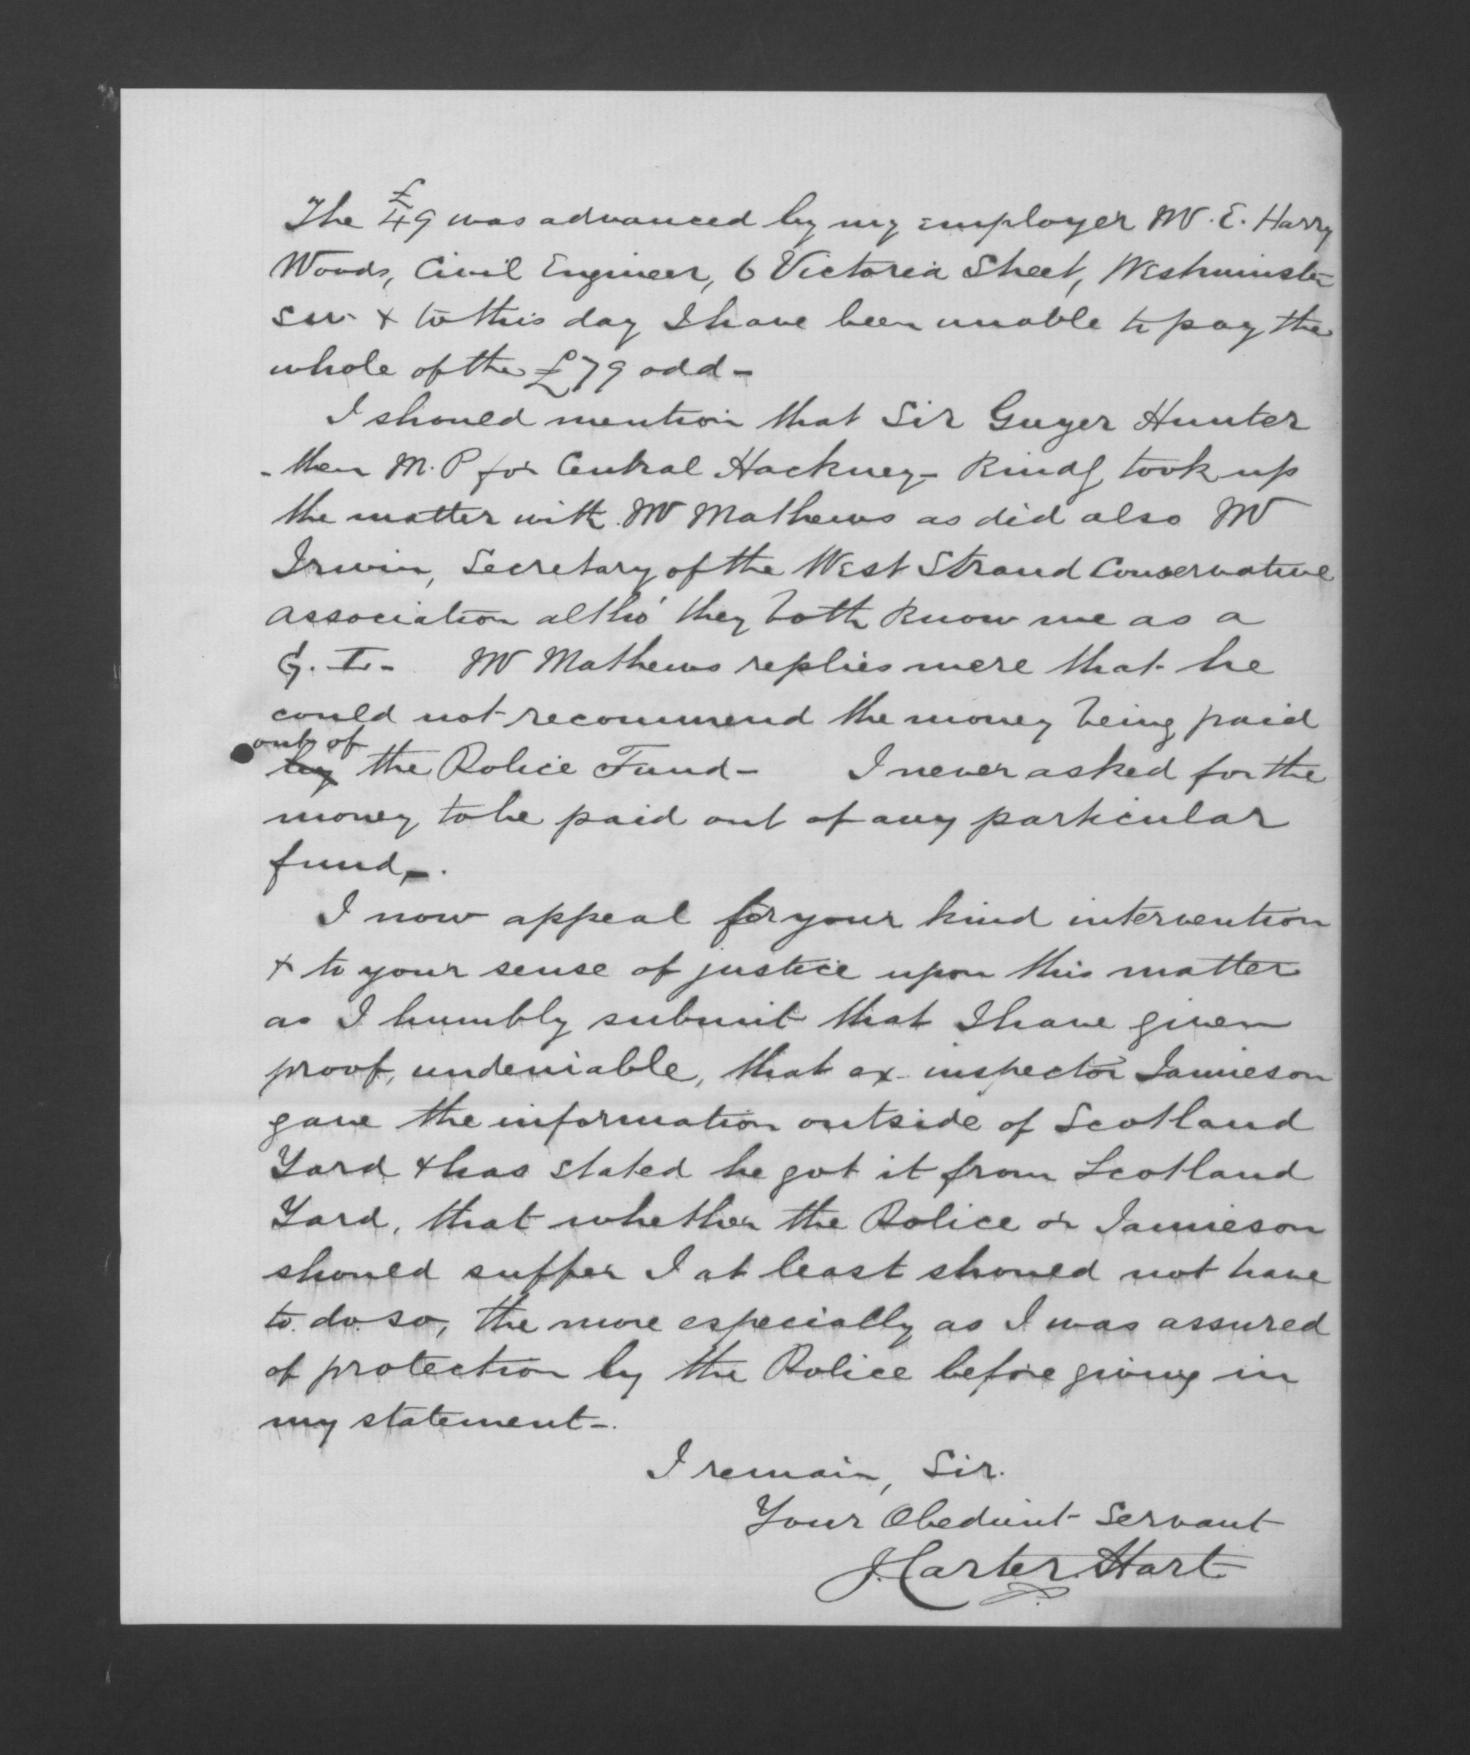 The £49 was advanced by my employer Mr. E. Harry
Woods, Civil Engineer, 6 Victoria Street, Westminster
S.W. & to this day I have been unable to pay the
whole of the £79 odd -
I should mention that Sir Guyer Hunter
- then M.P for Central Hackney - kindly took up
the matter with Mr Mathews as did also Mr
Irwin, Secretary of the West Strand Conservative
Association altho' they both know me as a
G. L. - Mr Mathews replies were that he
could not recommend the money being paid
out of
by the Police Fund - I never asked for the
money to be paid out of any particular
fund, -.
I now appeal for your kind intervention
& to your sense of justice upon this matter
as I humbly submit that I have given
proof, undeniable, that ex-inspector Jamieson
gave the information outside of Scotland
Yard & has stated he got it from Scotland
Yard, that whether the Police or Jamieson
should suffer I at least should not have
to do so, the more especially as I was assured
of protection by the Police before giving in
my statement -.
I remain, Sir.
Your Obedient Servant
J. Carter Hart